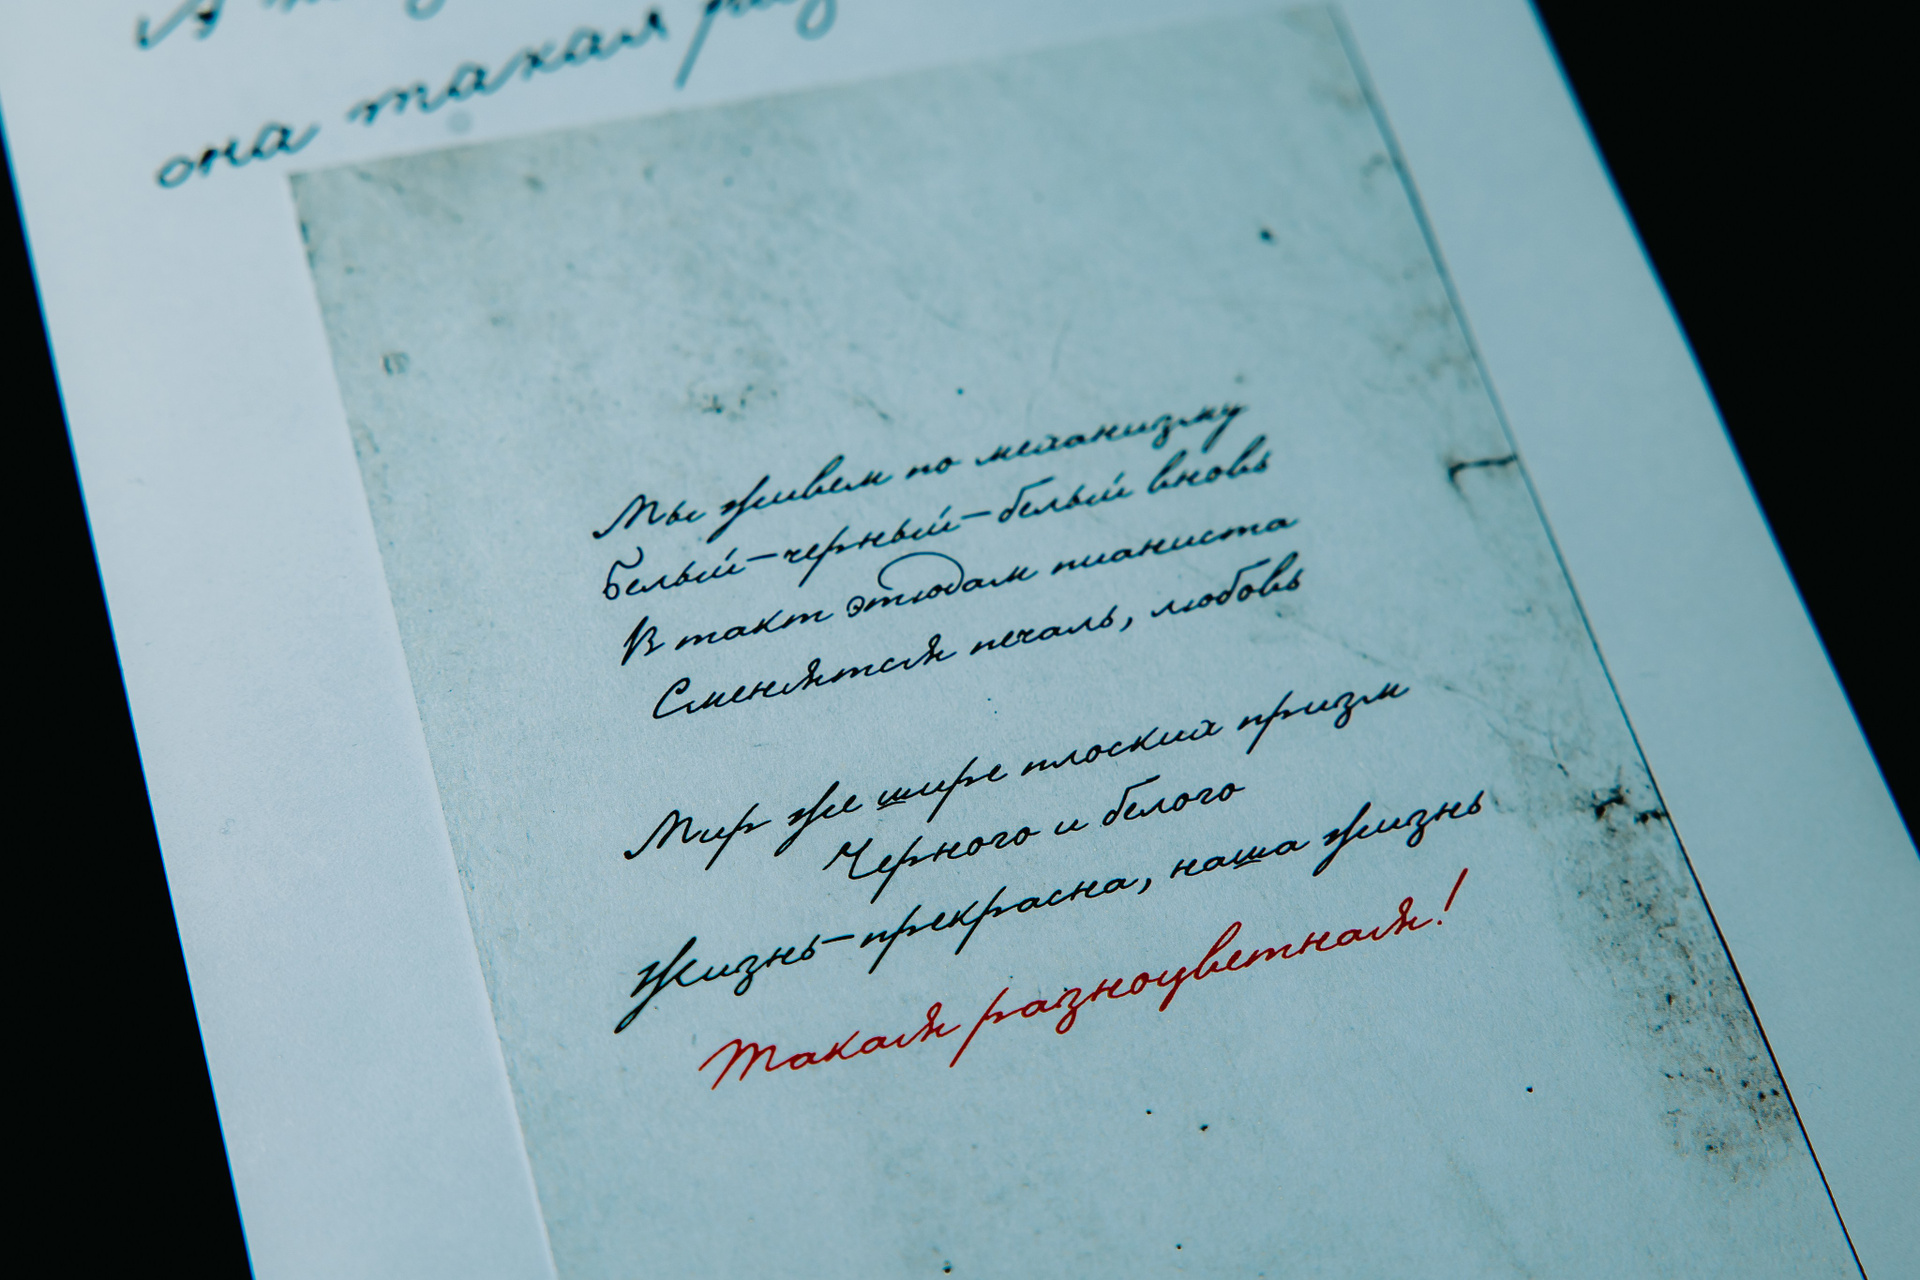 она такая
Мы живем по механизму
белый-черный-белый вновь
В такт этюдам пианиста
Сменятся печаль, любовь
Мир же шире плоский призм
Черного и белого
Жизнь-прекрасна, наша жизнь
Такая разноцветная!